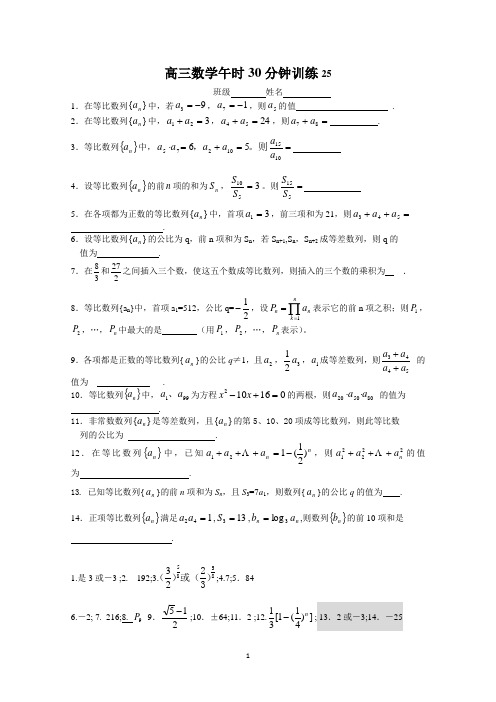 高三数学午时 30 分钟训练 25
班级 姓名
1．在等比数列{a_n}中，若a_3=-9，a_7=-1，则a_5的值 ．
2．在等比数列{a_n}中，a_1+a_2=3，a_4+a_5=24，则a_7+a_8= ．
3．等比数列{a_n}中，a_5·a_7=6，a_2+a_10=5。则 a_15/a_10 =
4．设等比数列{a_n}的前n项的和为S_n，S_10/S_5=3。则 S_15/S_5=
5．在各项都为正数的等比数列{a_n}中，首项a_1=3，前三项和为 21，则a_3+a_4+a_5=
．
6．设等比数列{a_n}的公比为 q，前 n 项和为 S_n，若 S_{n+1},S_n，S_{n+2} 成等差数列，则 q 的
值为 ．
7．在8/3和27/2之间插入三个数，使这五个数成等比数列，则插入的三个数的乘积为 ．
8．等比数列{a_n}中，首项 a_1=512，公比 q=-1/2，设P_n=∏_{k=1}^{n}a_n表示它的前 n 项之积；则P_1，
P_2，…，P_n中最大的是 （用P_1，P_2，…，P_n表示）。
9．各项都是正数的等比数列{a_n}的公比 q≠1，且a_2，1/2 a_3，a_1成等差数列，则(a_3+a_4)/(a_4+a_5) 的
值为 ．
10．等比数列{a_n}中，a_1、a_99为方程x^2-10x+16=0的两根，则a_20·a_50·a_80 的值为
．
11．非常数数列{a_n}是等差数列，且{a_n}的第 5、10、20 项成等比数列，则此等比数
列的公比为 ．
12．在等比数列{a_n}中，已知a_1+a_2+Λ+a_n=1-(1/2)^n，则a_1^2+a_2^2+Λ+a_n^2的值
为 ．
13. 已知等比数列{a_n}的前 n 项和为 S_n，且 S_3=7a_1，则数列{a_n}的公比 q 的值为 ．
14．正项等比数列{a_n}满足a_2a_4=1,S_3=13,b_n=log_3 a_n,则数列{b_n}的前 10 项和是
．
1.是 3 或－3 ;2. 192;3.(3/2)^{5/8}或(2/3)^{3/8};4.7;5．84
6.－2; 7. 216;8. P_9 9．(√5-1)/2 ;10．±64;11．2 ;12.1/3[1-(1/4)^n] ; 13．2 或－3;14．－25
1